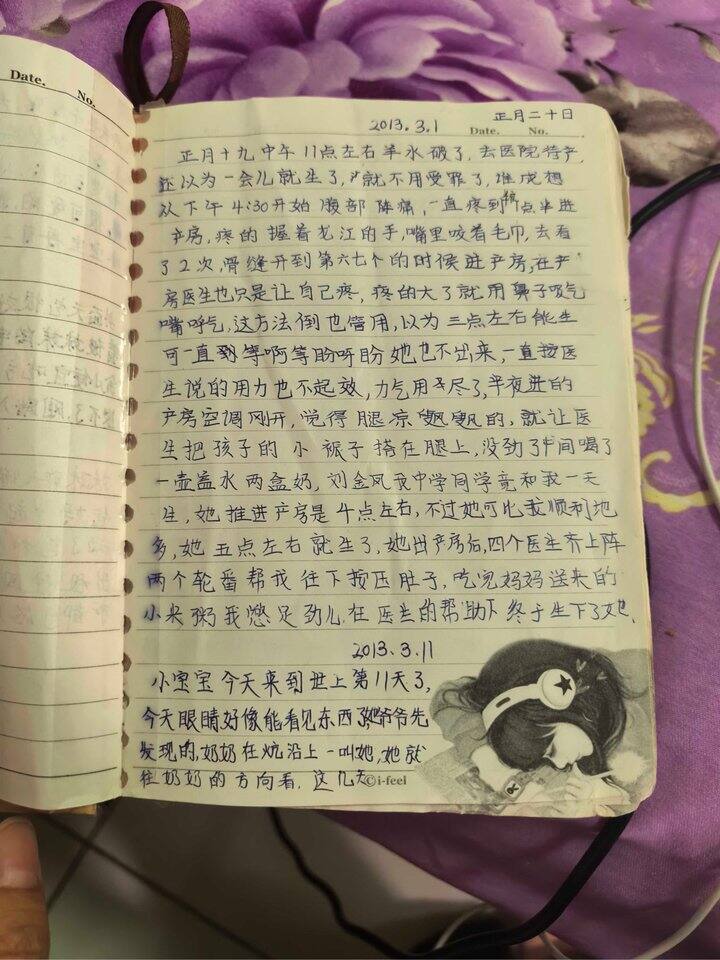 Date. No.
2013.3.1 正月二十日
Date. No.
正月十九中午11点左右羊水破了,去医院待产,
还以为一会儿就生了,就不用受罪了,谁成想
从下午4:30开始腹部阵痛,一直疼到 点半进
产房,疼的握着龙江的手,嘴里咬着毛巾,去看
了2次,骨缝开到第六七个的时候进产房,在产
房医生也只是让自己疼,疼的大了就用鼻子吸气
嘴呼气,这方法倒也管用,以为三点左右能生
可一直到等啊等盼呀盼她也不出来,一直按医
生说的用力也不起效,力气用尽了,半夜进的
产房空调刚开,觉得腿凉飕飕的,就让医
生把孩子的小褥子搭在腿上,没劲了中间喝了
一壶盖水两盒奶,刘金凤我中学同学竟和我一天
生,她推进产房是4点左右,不过她可比我顺利地
多,她五点左右就生了,她出产房后,四个医生齐上阵
两个轮番帮我往下按压肚子,吃完妈妈送来的
小米粥我憋足劲儿在医生的帮助下终于生下了她.
2013.3.11
小宝宝今天来到世上第11天了,
今天眼睛好像能看见东西了她爷爷先
发现的,奶奶在炕沿上一叫她,她就
往奶奶的方向看.这几天
©i-feel